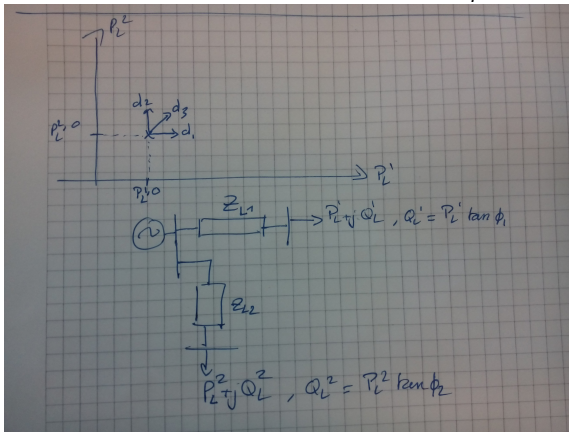 P_L^2
d2
d3
d1
P_L^2,0
P_L^1,0
P_L^1
Z_L1
P_L^1+jQ_L^1, Q_L^1=P_L^1 tan ϕ_1
Z_L2
P_L^2+jQ_L^2, Q_L^2=P_L^2 tan ϕ_2